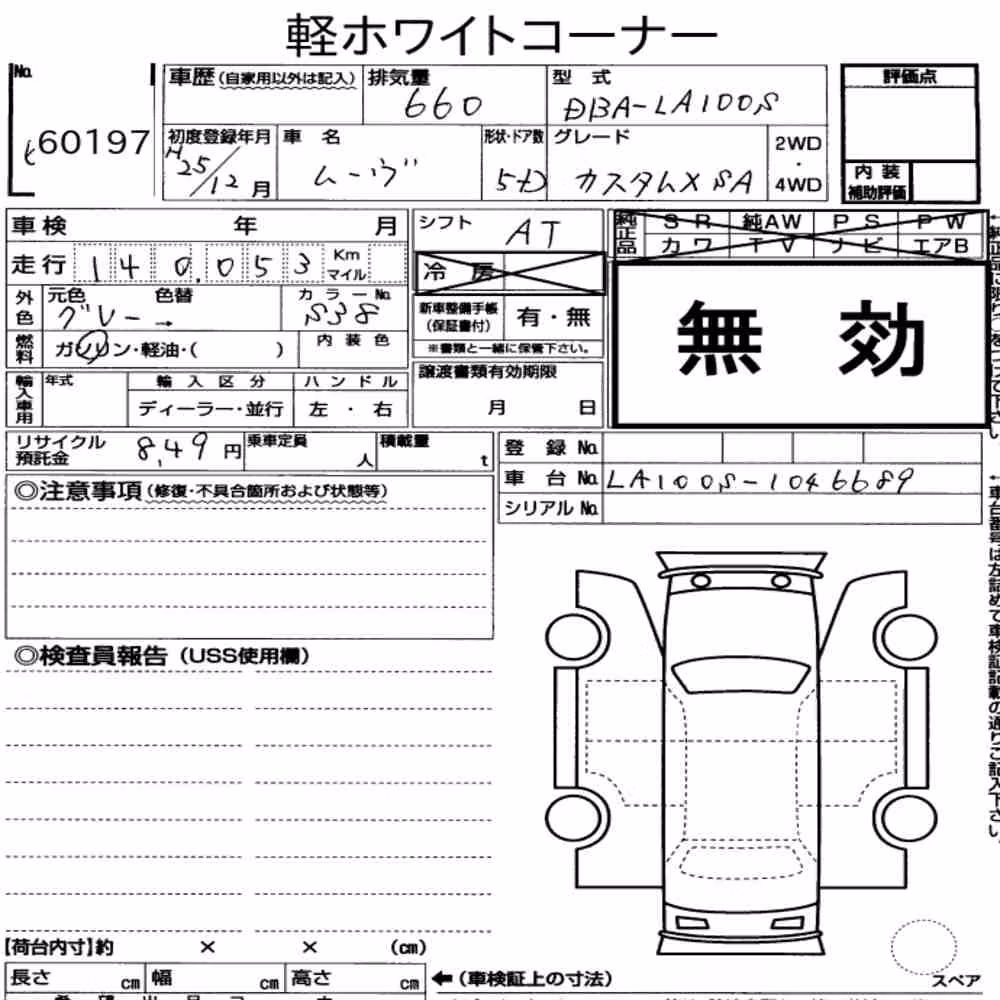 軽ホワイトコーナー
No.
60197
車歴(自家用以外は記入)
排気量
660
型 式
DBA-LA100S
評価点
初度登録年月
H25/12月
車 名
ムーヴ
形状・ドア数
5D
グレード
カスタムX SA
2WD
・
4WD
内 装
補助評価
車検 年 月
シフト
AT
純正品
SR 純AW PS PW
カワ TV ナビ エアB
走行 140,053 Km
マイル
冷 房
外色
元色 色替
グレー →
カラーNo.
S38
新車整備手帳
(保証書付)
有・無
※書類と一緒に保管下さい。
無 効
燃料
ガソリン・軽油・( )
内 装 色
輸入車用
年式
輸 入 区 分
ハ ン ド ル
ディーラー・並行
左 ・ 右
譲渡書類有効期限
月 日
リサイクル
預託金
8,49 円
乗車定員
人
積載量
t
登 録 No.
車 台 No. LA100S-1046689
シリアル No.
◎注意事項(修復・不具合箇所および状態等)
◎検査員報告(USS使用欄)
車台番号は左詰めで車検証記載の通りご記入下さい。
【荷台内寸】約 × × (cm)
長さ cm 幅 cm 高さ cm
←(車検証上の寸法)
スペア